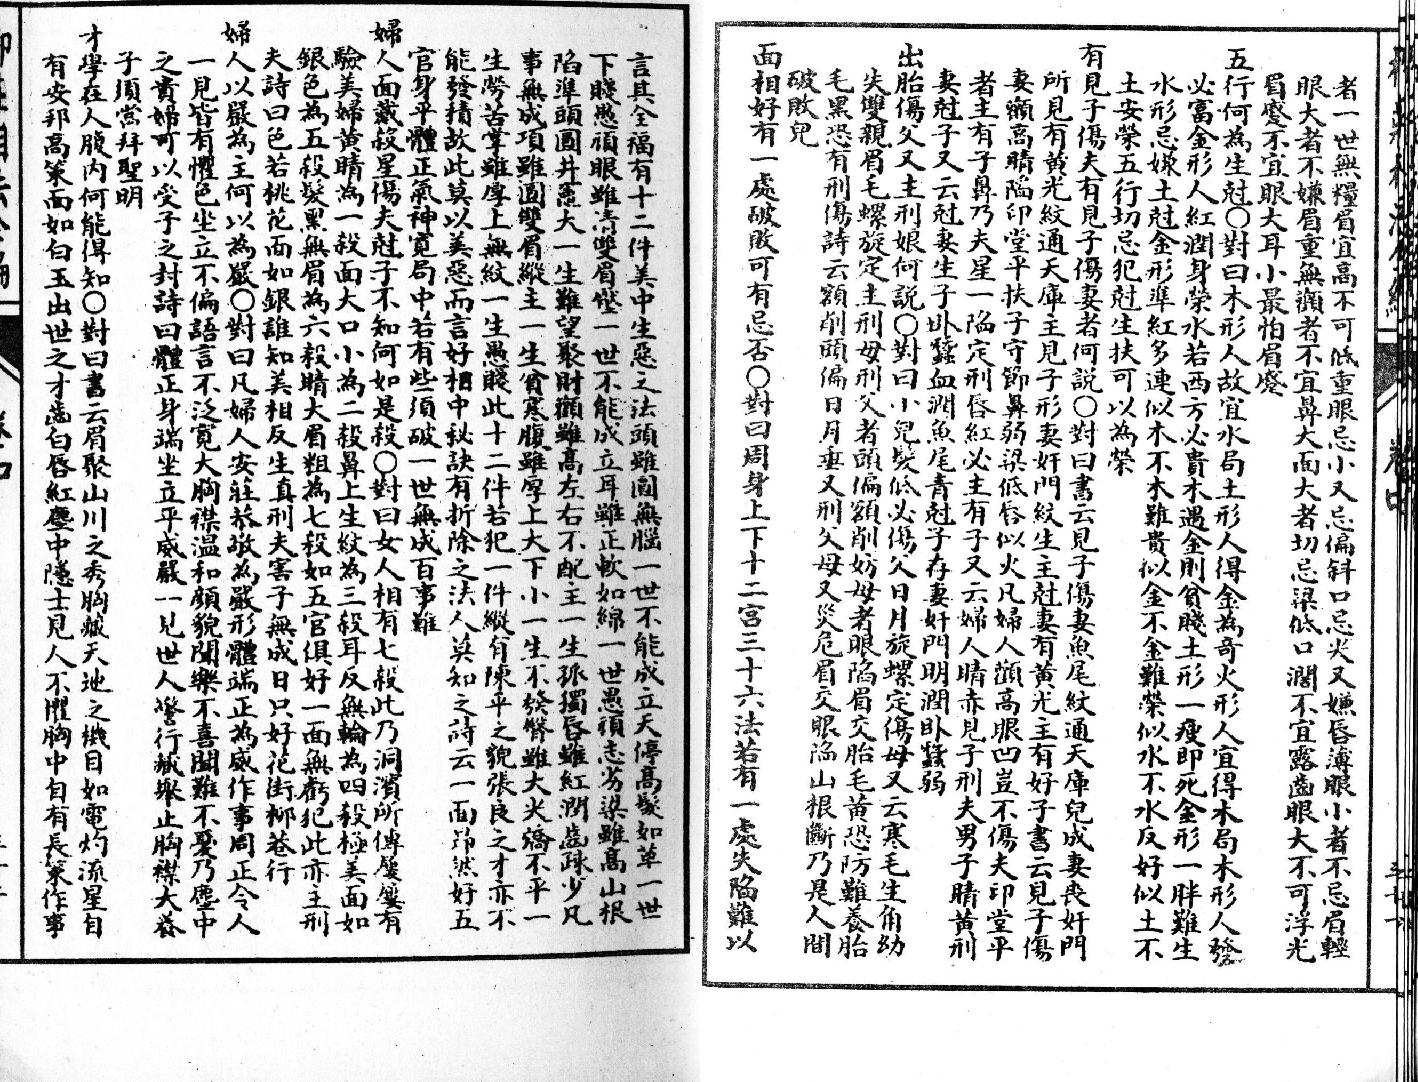 者一世無糧眉宜高不可低重眼忌小又忌偏斜口忌尖又嫌唇薄眼小者不忌眉輕
眼大者不嫌眉重無顴者不宜鼻大面大者切忌梁低口濶不宜露齒眼大不可浮光
眉蹙不宜眼大耳小最怕眉蹙
五行何為生尅〇對曰木形人故宜水局土形人得金為奇火形人宜得木局木形人發
必富金形人紅潤身榮水若西方必貴木遇金則貧賤土形一瘦即死金形一胖難生
水形忌嫌土尅金形準紅多連似木不木雖貴似金不金難榮似水不水反好似土不
土安榮五行切忌犯尅生扶可以為榮
有見子傷夫有見子傷妻者何説〇對曰書云見子傷妻魚尾紋通天庫兒成妻喪奸門
所見有黃光紋通天庫主見子形妻奸門紋生主尅妻有黃光主有好子書云見子傷
妻顴高睛陷印堂平扶子守節鼻弱梁低唇似火凡婦人顴高眼凹豈不傷夫印堂平
者主有子鼻乃夫星一陷定刑唇紅必主有子又云婦人睛赤見子刑夫男子睛黃刑
妻尅子又云尅妻生子卧蠶血潤魚尾青尅子存妻奸門明潤卧蠶弱
出胎傷父又主刑娘何説〇對曰小兒髮低必傷父日月旋螺定傷母又云寒毛生角幼
失雙親眉毛螺旋定主刑母刑父者頭偏額削妨母者眼陷眉交胎毛黃恐防難養胎
毛黑恐有刑傷詩云額削頭偏日月垂又刑父母又災危眉交眼陷山根斷乃是人間
破敗兒
面相好有一處破敗可有忌否〇對曰周身上下十二宮三十六法若有一處失陷難以
言其全福有十二件美中生惡之法頭雖圓無腦一世不能成立天停高髮如草一世
下賤愚頑眼雖清雙眉蹙一世不能成立耳雖正軟如綿一世愚頑志劣梁雖高山根
陷準頭圓井竈大一生難望聚財顴雖高左右不配主一生孤獨唇雖紅潤齒踈少凡
事無成項雖圓雙眉縱主一生貧寒腹雖厚上大下小一生不發臀雖大尖蹺不平一
生勞苦掌雖厚上無紋一生愚賤此十二件若犯一件縱有陳平之貌張良之才亦不
能發積故此莫以美惡而言好相中秘訣有折除之法人莫知之詩云一面昂然好五
官身平體正氣神寬局中若有些須破一世無成百事難
婦人面戴殺星傷夫尅子不知何如是殺〇對曰女人相有七殺此乃洞濱所傳屢屢有
驗美婦黃睛為一殺面大口小為二殺鼻上生紋為三殺耳反無輪為四殺極美面如
銀色為五殺髮黑無眉為六殺睛大眉粗為七殺如五官俱好一面無虧犯此亦主刑
夫詩曰色若桃花面如銀誰知美相反生真刑夫害子無成日只好花街柳巷行
婦人以嚴為主何以為嚴〇對曰凡婦人安莊恭敬為嚴形體端正為威作事周正令人
一見皆有懼色坐立不偏語言不泛寬大胸襟溫和顏貌聞樂不喜聞難不憂乃塵中
之貴婦可以受子之封詩曰體正身端坐立平威嚴一見世人驚行藏舉止胸襟大養
子須當拜聖明
才學在人腹内何能得知〇對曰書云眉聚山川之秀胸藏天地之機目如電灼流星自
有安邦高策面如白玉出世之才齒白唇紅塵中隱士見人不懼胸中自有長策作事